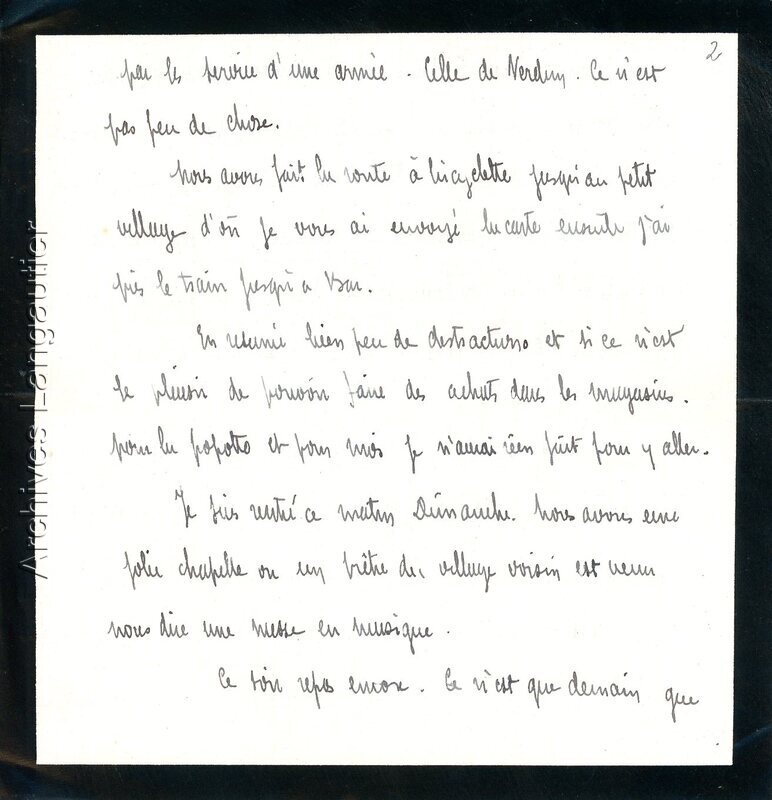 2
par les service d'une armée. Celle de Verdun. Ce n'est
pas peu de chose.
Nous avons fait la route à bicyclette jusqu'au petit
village d'où je vous ai envoyé la carte ensuite j'ai
pris le train jusqu'a Bar.
En resumé bien peu de distractions et si ce n'est
le plaisir de pouvoir faire des achats dans les magasins.
pour la popotte et pour moi je n'aurai rien fait pour y aller.
Je suis rentré ce matin Dimanche. Nous avons une
jolie chapelle ou un prêtre du village voisin est venu
nous dire une messe en musique.
Ce soir repos encore. Ce n'est que demain que
Archives Langautier